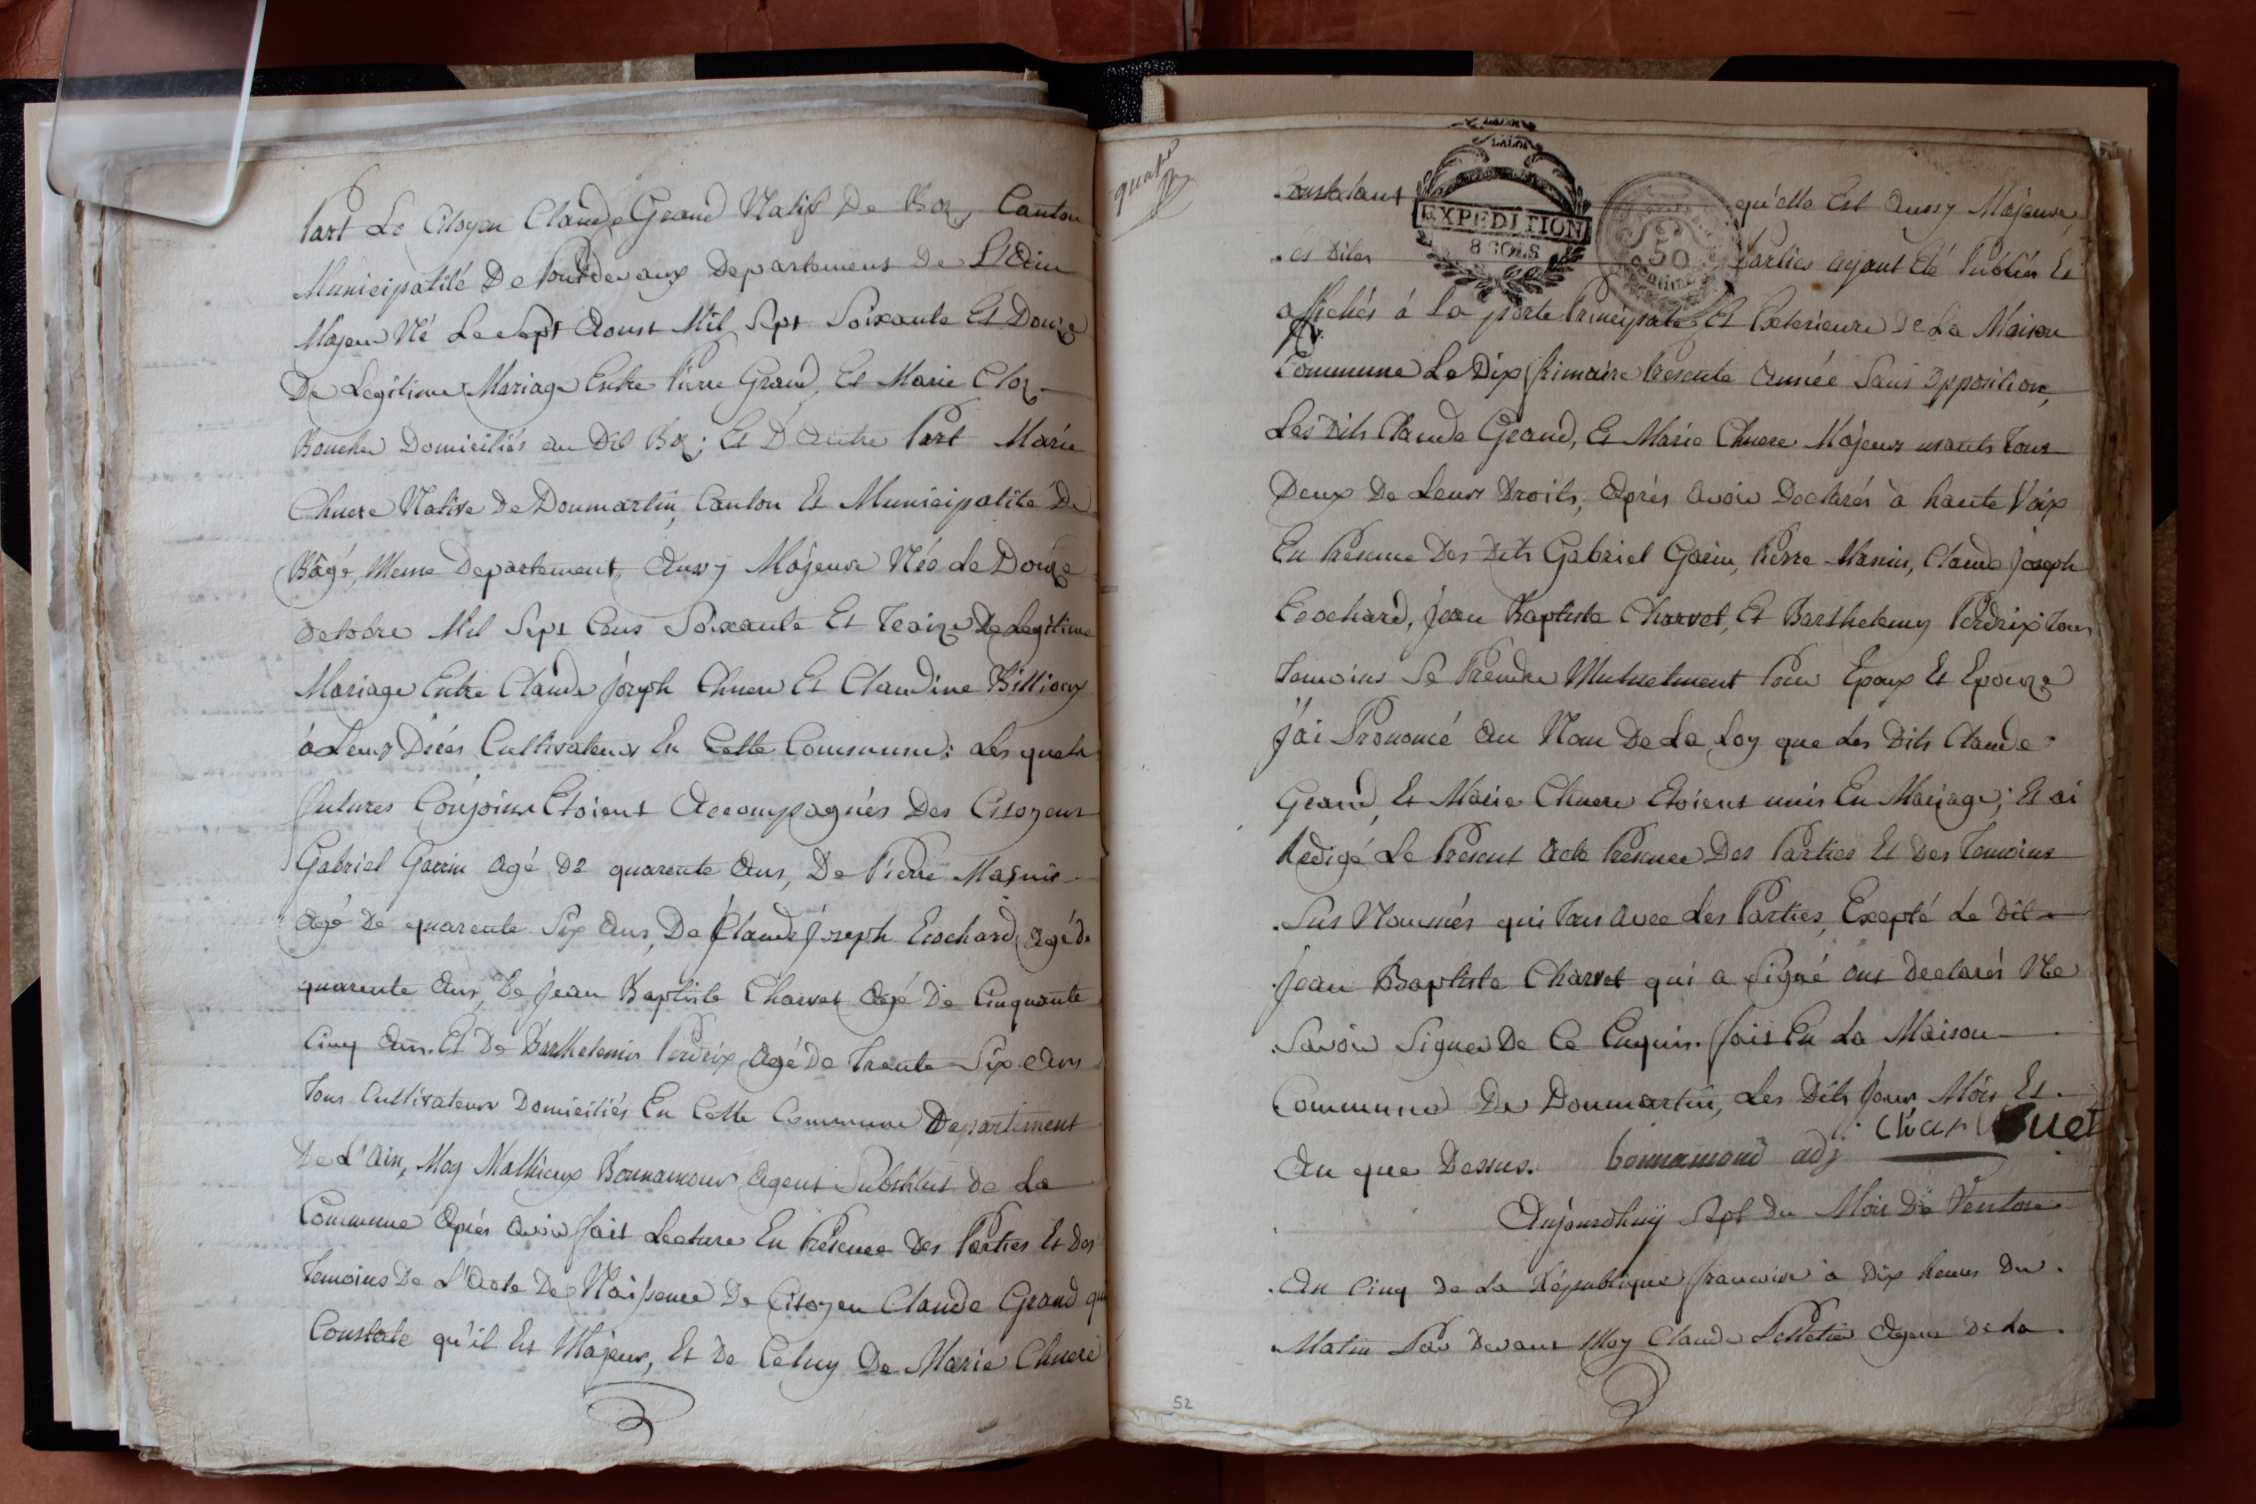 Part Le Citoyen Claude Grand Natif De Boz, Canton
Municipalité De Pontdevaux Departement De L'Ain
Majeur Né Le Sept Aoust Mil Sept Soixante Et Douze
De Legitime Mariage Entre Pierre Grand, Et Marie Cloz
Boucher Domiciliés au Dit Boz; Et D'Autre Part Marie
Chuere Native De Donmartin, Canton Et Municipalité De
Bâgé, Meme Departement, Aussy Majeure Née Le Douze
Octobre Mil Sept Cens Soixante Et Treize De Legitime
Mariage Entre Claude Joseph Chuere Et Claudine Billioux
à Leurs Déces Cultivateurs En Cette Commune: Les quels
futures Conjoins Etoient Accompagnés Des Citoyens
Gabriel Garin Agé De quarente Ans, De Pierre
Agé De quarente Six Ans, De Claude Joseph Ecochard Agé de
quarente Ans, De Jean Baptiste Charvet Agé De Cinquante
Cinq Ans. Et De Barthelemis Perdrix Agé De Trente Six Ans
Tous Cultivateurs Domiciliés En Cette Commune Departement
De L'Ain, Moy Mathieux Bonnamour Agent Substitut De La
Commune Aprés Avoir fait Lecture En Présence Des Parties Et Des
Temoins De L'Acte De Naissance De Citoyen Claude Grand qui
Constate qu'il Est Majeur, Et De Celuy De Marie Chuere
quatre
LA LOI
EXPEDITION
8 SOLS
50
Constatant qu'elle Est Aussy Majeure,
Les Dites Parties Ayant Eté Publiés Et
Affichés á La porte Principale, Et Exterieure De La Maison
Commune Le Dix frimaire Presente Année Sans Opposition,
Les Dits Claude Grand, Et Marie Chuere Majeurs usants Tous
Deux De Leurs Droits, Aprés Avoir Declarés à haute Voix
En Présence Des Dits Gabriel Garin, Pierre Claude Joseph
Ecochard, Jean Baptiste Charvet, Et Barthelemy Perdrix Tous
Temoins Se Prendre Mutuelment Pour Epoux Et Epouze
J'ai Prononcé Au Nom De La Loy que Les Dits Claude
Grand, Et Marie Chuere Etoient unis En Mariage; Et ai
Redigé Le Present Acte Présence Des Parties Et Des Temoins
Sus Nommés qui Tous Avec Les Parties, Exepté Le Dit
Jean Baptiste Charvet qui a Signé ont Declarés Ne
Savoir Signer De Ce Enquis. fait En La Maison
Commune De Donmartin, Les Dits Jour Mois Et
An que Dessus. bonnamour adj
Aujourdhuy Sept Du Mois De Ventose
An Cinq De La République francoise à Dix heures Du
Matin Par Devant Moy Claude Pelletier Agent De La
52